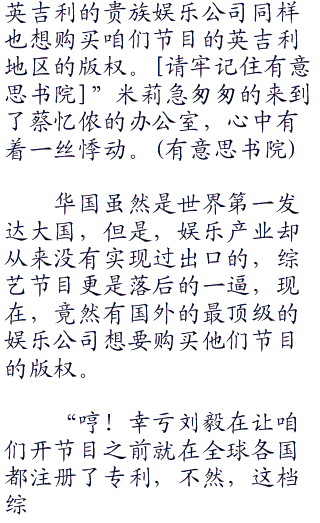 英吉利的贵族娱乐公司同样
也想购买咱们节目的英吉利
地区的版权。[请牢记住有意
思书院]”米莉急匆匆的来到
了蔡忆侬的办公室，心中有
着一丝悸动。(有意思书院)
华国虽然是世界第一发
达大国，但是，娱乐产业却
从来没有实现过出口的，综
艺节目更是落后的一逼，现
在，竟然有国外的最顶级的
娱乐公司想要购买他们节目
的版权。
“哼！幸亏刘毅在让咱
们开节目之前就在全球各国
都注册了专利，不然，这档
综